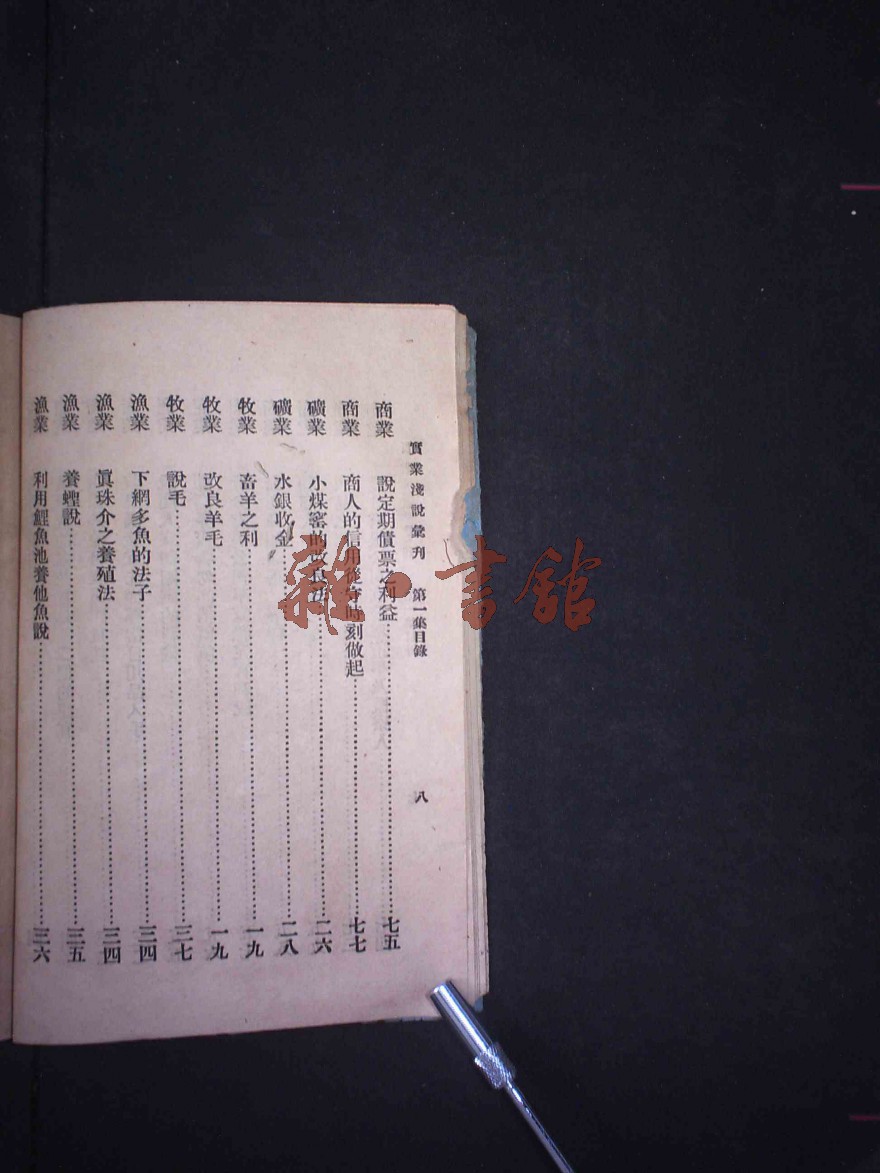 實業淺說彙刊 第一集目錄 八
商業 說定期債票之利益 七五
商業 商人的信用從守時刻做起 七七
礦業 小煤窰的改良法 二六
礦業 水銀收金 二八
牧業 畜羊之利 一九
牧業 改良羊毛 一九
牧業 說毛 三七
漁業 下網多魚的法子 三四
漁業 眞珠介之養殖法 三四
漁業 養蟶說 三五
漁業 利用鯉魚池養他魚說 三六
雜·書館